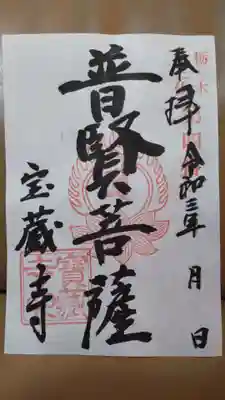 奉拝 令和三年 月 日
普賢菩薩
宝蔵寺